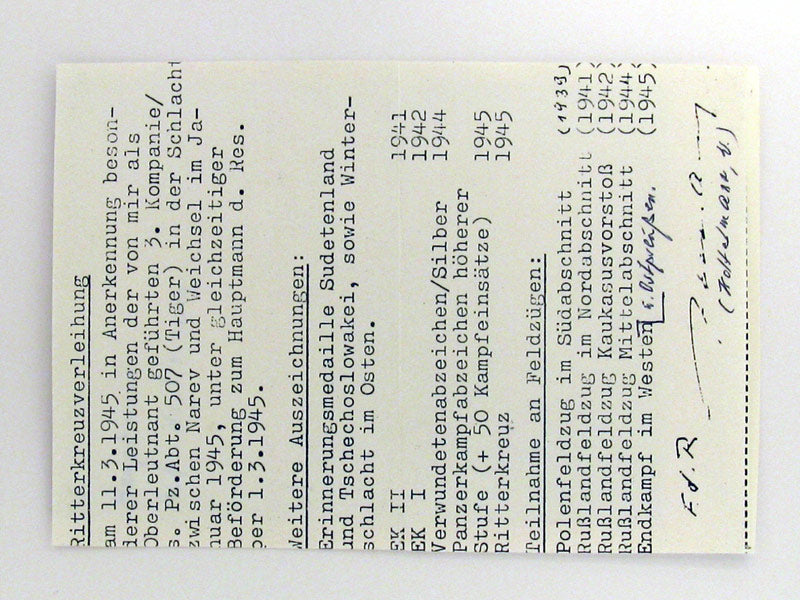 Ritterkreuzverleihung
am 11.3.1945 in Anerkennung beson-
derer Leistungen der von mir als
Oberleutnant geführten 3. Kompanie/
s. Pz.Abt. 507 (Tiger) in der Schlacht
zwischen Narev und Weichsel im Ja-
nuar 1945, unter gleichzeitiger
Beförderung zum Hauptmann d. Res.
per 1.3.1945.
Weitere Auszeichnungen:
Erinnerungsmedaille Sudetenland
und Tschechoslowakei, sowie Winter-
schlacht im Osten.
EK II 1941
EK I 1942
Verwundetenabzeichen/Silber 1944
Panzerkampfabzeichen höherer
Stufe (+ 50 Kampfeinsätze) 1945
Ritterkreuz 1945
Teilnahme an Feldzügen:
Polenfeldzug im Südabschnitt (1939)
Rußlandfeldzug im Nordabschnitt (1941)
Rußlandfeldzug Kaukasusvorstoß (1942)
Rußlandfeldzug Mittelabschnitt (1944)
Endkampf im Westen u. Ostpreußen. (1945)
F. d. R.